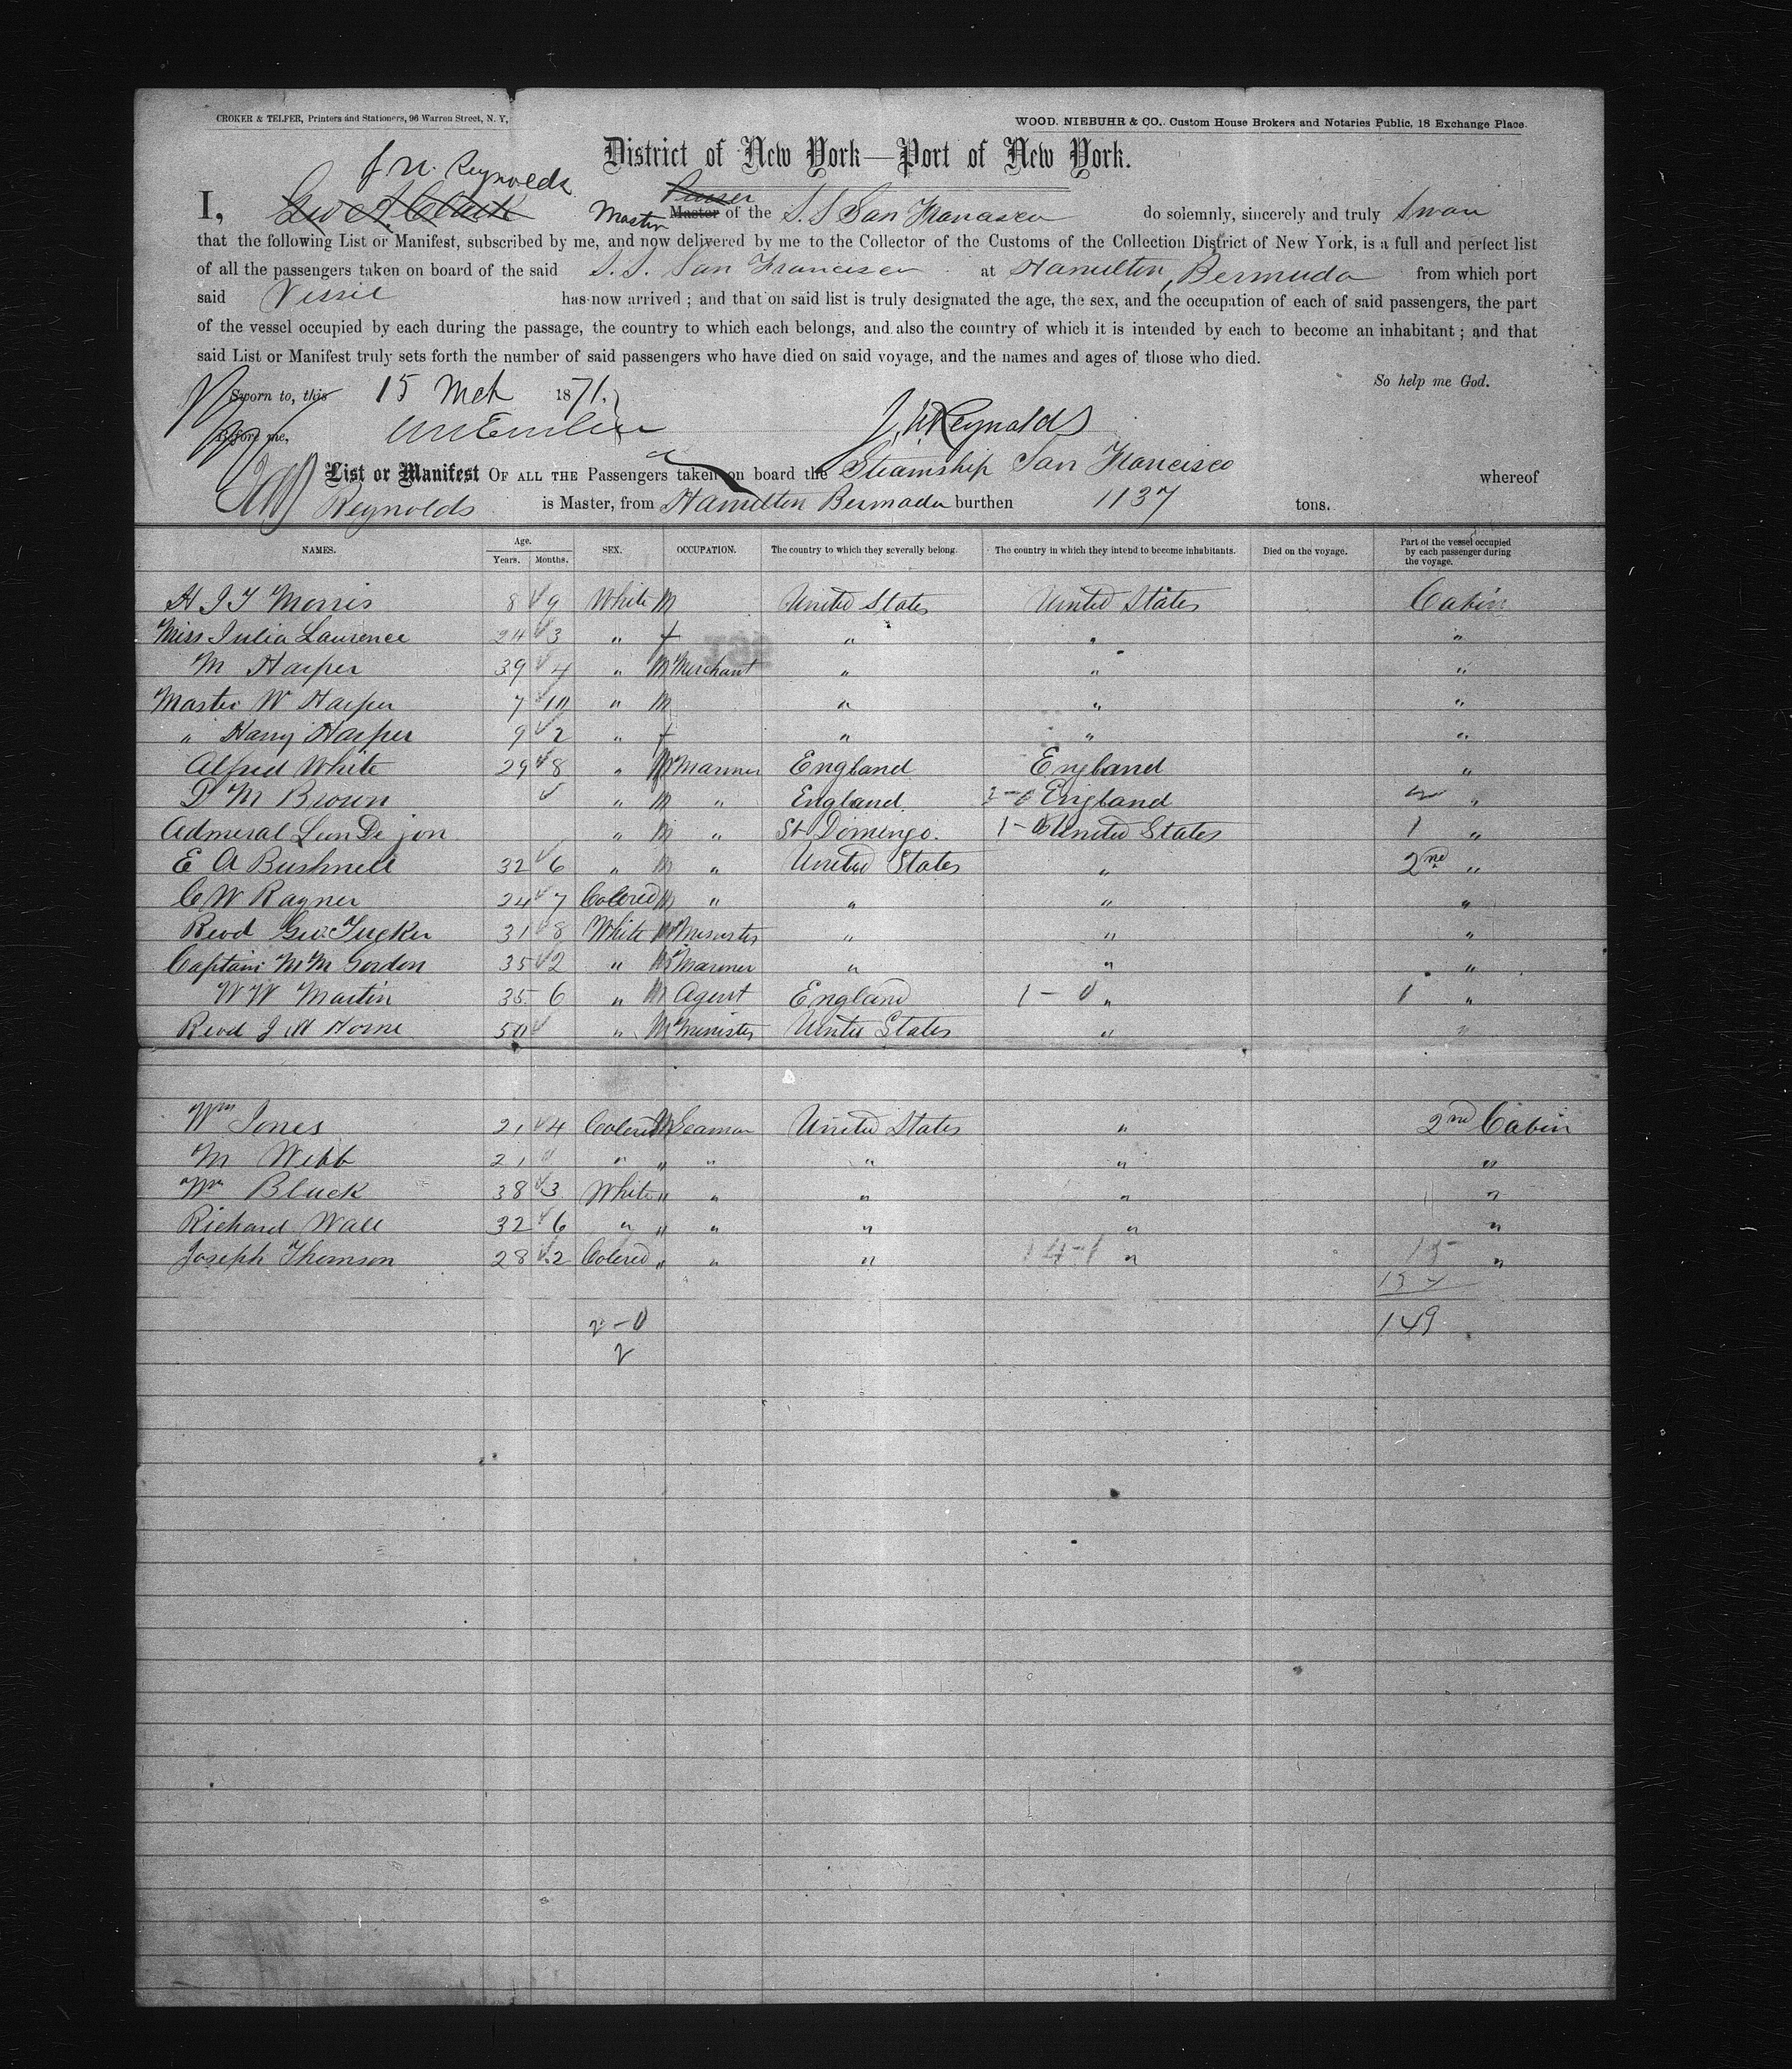 CROKER & TELFER, Printers and Stationers, 96 Warren Street, N. Y.
WOOD, NIEBUHR & CO., Custom House Brokers and Notaries Public, 18 Exchange Place.
District of New York—Port of New York.
J W Reynolds
Purser
I, Geo A Clark Master Master of the S. S San Francisco do solemnly, sincerely and truly Swear
that the following List or Manifest, subscribed by me, and now delivered by me to the Collector of the Customs of the Collection District of New York, is a full and perfect list
of all the passengers taken on board of the said S. S. San Francisco at Hamilton, Bermuda from which port
said Vessel has now arrived ; and that on said list is truly designated the age, the sex, and the occupation of each of said passengers, the part
of the vessel occupied by each during the passage, the country to which each belongs, and also the country of which it is intended by each to become an inhabitant ; and that
said List or Manifest truly sets forth the number of said passengers who have died on said voyage, and the names and ages of those who died.
So help me God.
Sworn to, this 15 Mch 1871.
Before me,
J. W Reynolds
List or Manifest OF ALL THE Passengers taken on board the Steamship San Francisco whereof
Reynolds is Master, from Hamilton Bermuda burthen 1137 tons.
NAMES. Age. Years. Months. SEX. OCCUPATION. The country to which they severally belong. The country in which they intend to become inhabitants. Died on the voyage. Part of the vessel occupied by each passenger during the voyage.
H J T Morris 8 9 White M United States United States Cabin
Miss Julia Laurence 24 3 " f " " "
M Harper 39 4 " M Merchant " " "
Master W Harper 7 10 " M " " "
" Harry Harper 9 2 " f " " "
Alfred White 29 8 " M Mariner England England "
D M Brown " M " England. England "
Admiral Leon De jon " M " St Domingo. 1-0 United States 1 "
E A Bushnell 32 6 " M " United States " 2nd "
C W Rayner 24 7 Colored M " " " "
Revd Geo. Tucker 31 8 White M Minister " " "
Captain M M Gordon 35 2 " M Mariner " " "
W W Martin 35 6 " M Agent England 1-0 " 1 "
Revd J W Horne 50 " M Minister United States " "
Wm Jones 21 4 Colored M Seaman United States " 2nd Cabin
M Webb 21 " " " " " "
Wm Black 38 3 White " " " " "
Richard Wall 32 6 " " " " " "
Joseph Thomson 28 2 Colored " " " 14-1 " 15 "
134
2-0 149
2